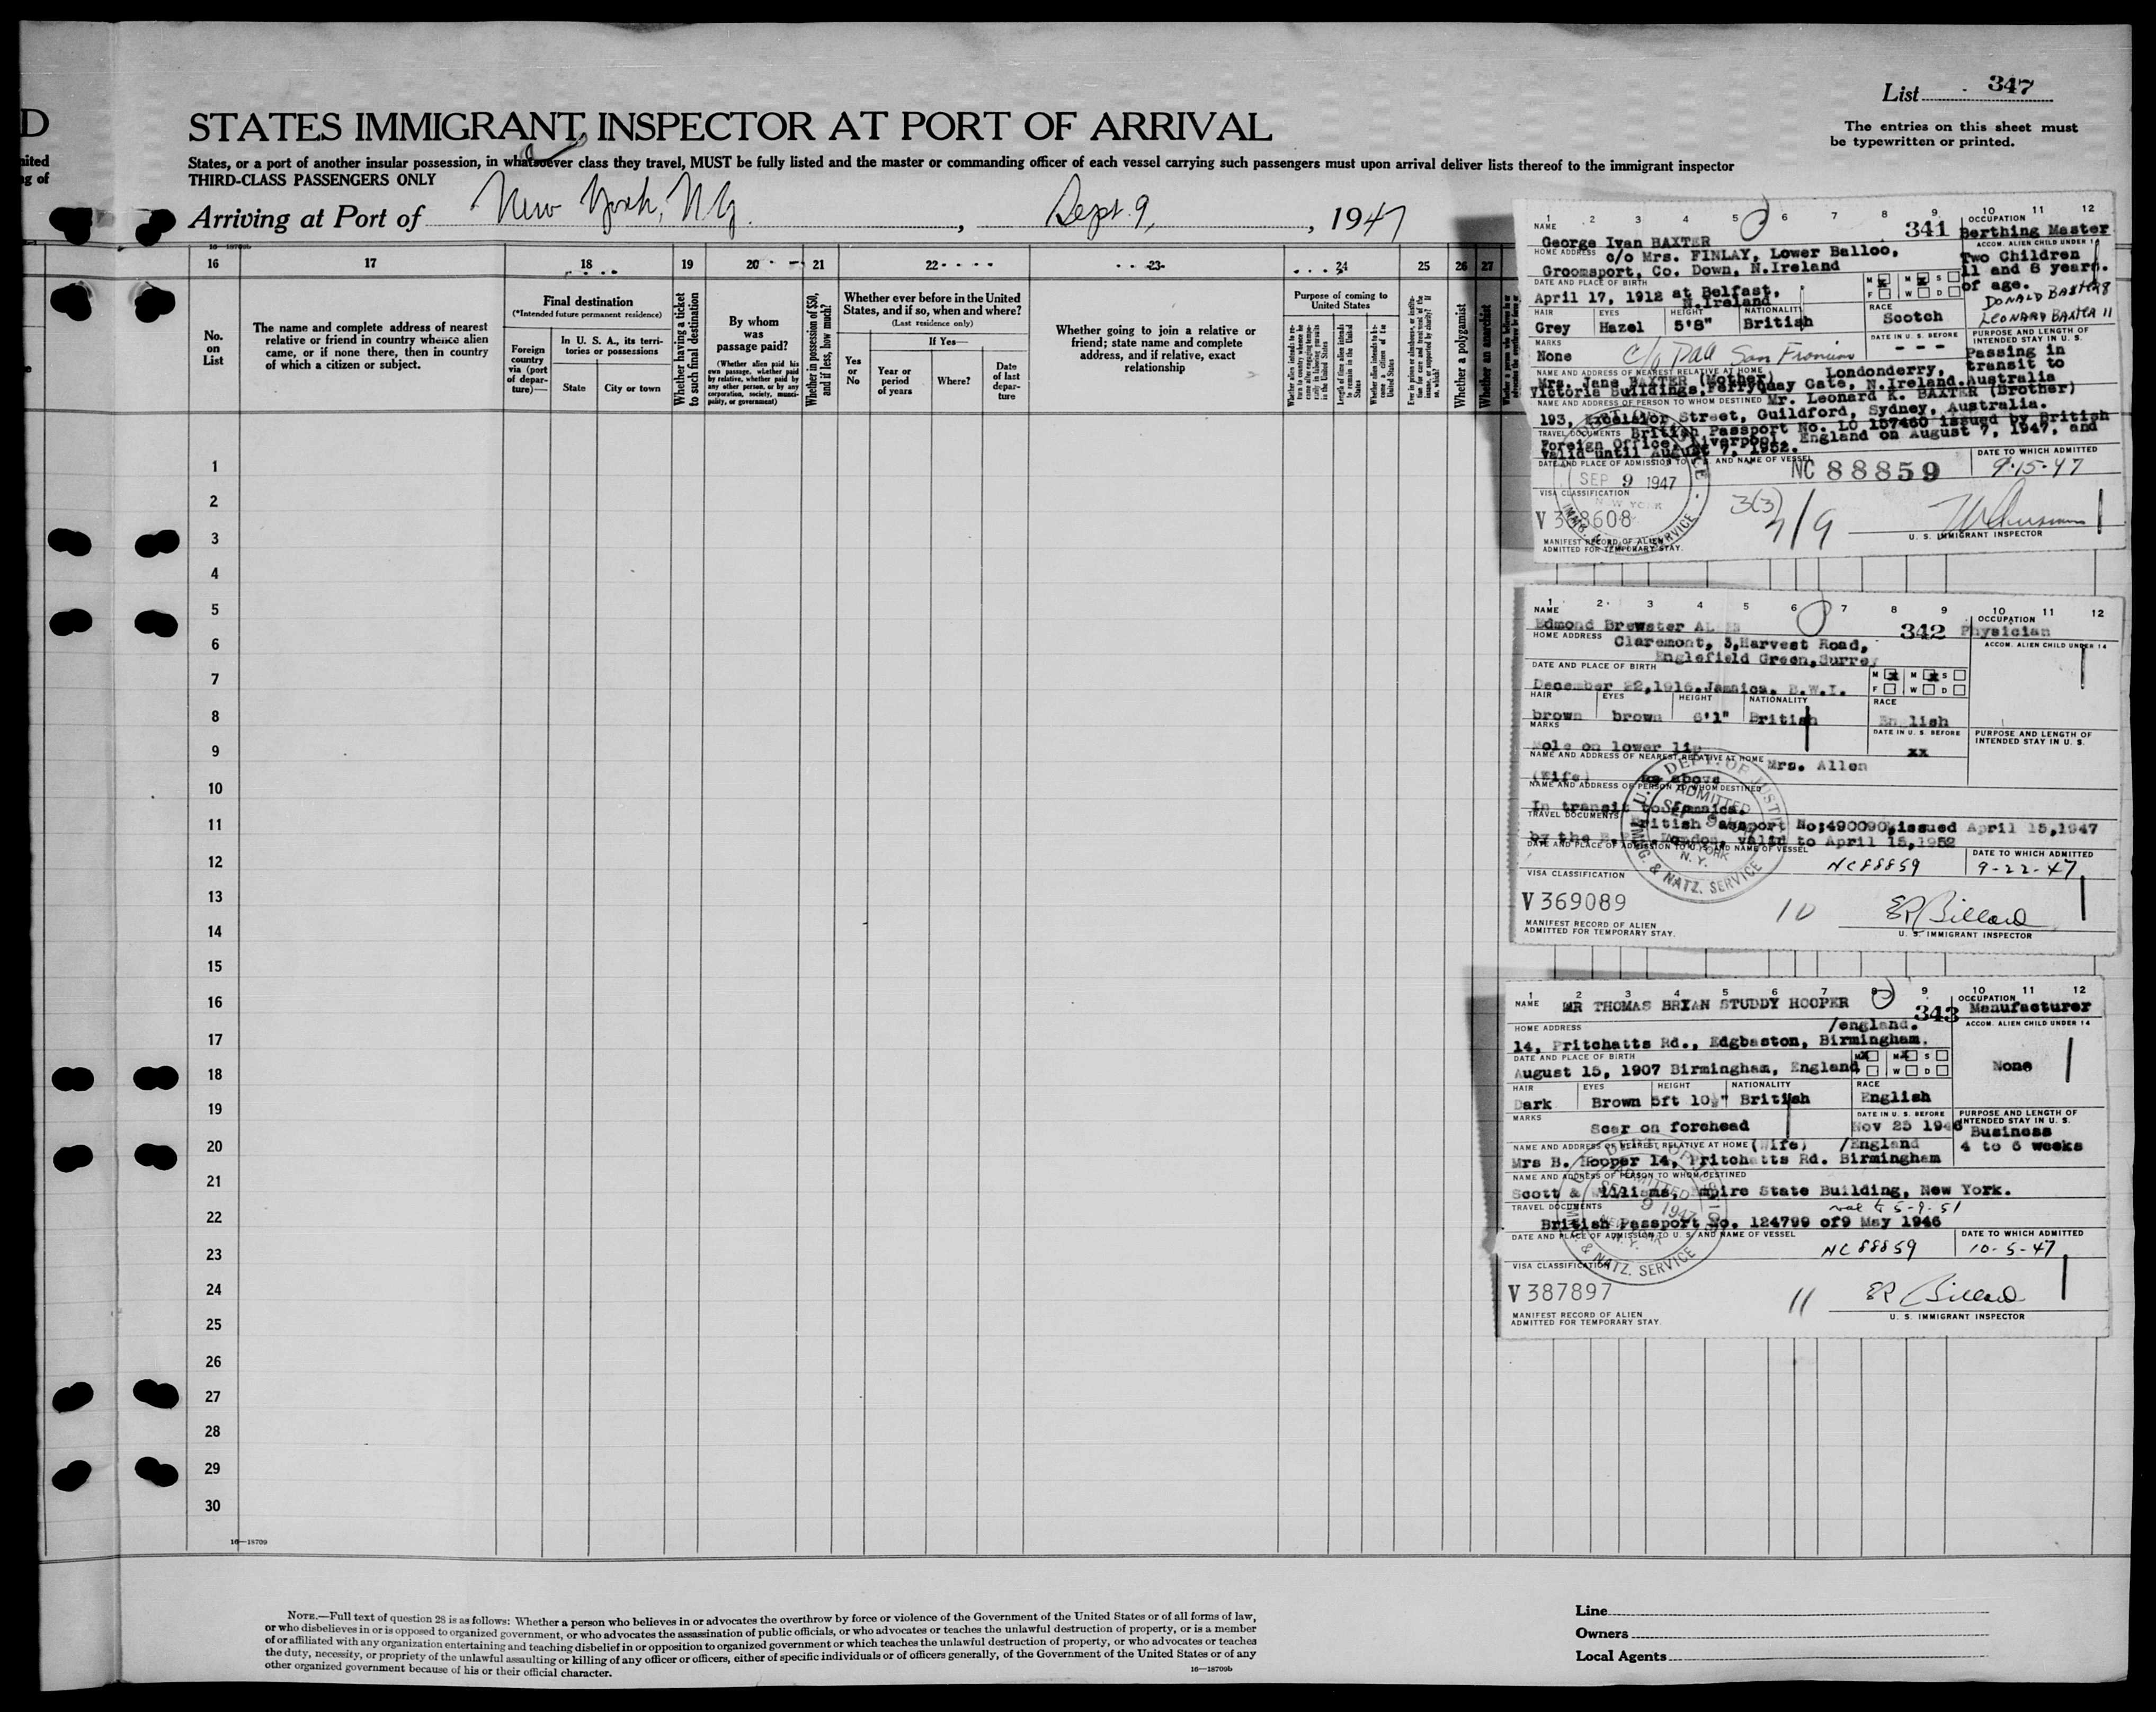 List 347
STATES IMMIGRANT INSPECTOR AT PORT OF ARRIVAL
The entries on this sheet must
be typewritten or printed.
D
nited
g of
States, or a port of another insular possession, in whatsoever class they travel, MUST be fully listed and the master or commanding officer of each vessel carrying such passengers must upon arrival deliver lists thereof to the immigrant inspector
THIRD-CLASS PASSENGERS ONLY
Arriving at Port of New York, N.Y., Sept. 9, 1947
16 17 18 19 20 21 22 23 24 25 26 27
No.
on
List
The name and complete address of nearest
relative or friend in country whence alien
came, or if none there, then in country
of which a citizen or subject.
Final destination
(*Intended future permanent residence)
Foreign
country
via (port
of depar-
ture)—
In U. S. A., its terri-
tories or possessions
State
City or town
Whether having a ticket
to such final destination
By whom
was
passage paid?
(Whether alien paid his
own passage, whether paid
by relative, whether paid by
any other person, or by any
corporation, society, munici-
pality, or government)
Whether in possession of $50,
and if less, how much?
Whether ever before in the United
States, and if so, when and where?
(Last residence only)
Yes
or
No
If Yes—
Year or
period
of years
Where?
Date
of last
depar-
ture
Whether going to join a relative or
friend; state name and complete
address, and if relative, exact
relationship
Purpose of coming to
United States
Whether alien intends to re-
turn to country whence he
came after engaging tempo-
rarily in laboring pursuits
in the United States
Length of time alien intends
to remain in the United
States
Whether alien intends to be-
come a citizen of the
United States
Whether a polygamist
Whether an anarchist
1
2
3
4
5
6
7
8
9
10
11
12
13
14
15
16
17
18
19
20
21
22
23
24
25
26
27
28
29
30
16—18709
1 2 3 4 5 6 7 8 9 10 11 12
NAME
341
OCCUPATION
Berthing Master
George Ivan BAXTER
ACCOM. ALIEN CHILD UNDER 14
HOME ADDRESS c/o Mrs. FINLAY, Lower Balloo,
Groomsport, Co. Down, N.Ireland
Two Children
11 and 8 years.
of age.
DONALD BAXTER 8
LEONARD BAXTER 11
DATE AND PLACE OF BIRTH
April 17, 1912 at Belfast,
N.Ireland
M X F M X W S D
HAIR EYES HEIGHT NATIONALITY RACE
Grey Hazel 5'8" British Scotch
MARKS
None
c/o PAA San Francisco
DATE IN U. S. BEFORE
- - -
PURPOSE AND LENGTH OF
INTENDED STAY IN U. S.
Passing in
transit to
Australia
NAME AND ADDRESS OF NEAREST RELATIVE AT HOME
Mrs. Jane BAXTER (Mother) Londonderry,
Victoria Buildings, Ferryquay Gate, N.Ireland.
NAME AND ADDRESS OF PERSON TO WHOM DESTINED Mr. Leonard K. BAXTER (Brother)
193, Excelsior Street, Guildford, Sydney, Australia.
TRAVEL DOCUMENTS British Passport No. LO 157460 issued by British
Foreign Office, Liverpool, England on August 7, 1947, and
valid until August 7, 1952.
DATE AND PLACE OF ADMISSION TO U. S. AND NAME OF VESSEL
NC 88859
DATE TO WHICH ADMITTED
9-15-47
SEP 9 1947
NEW YORK
IMMIG. & NATZ. SERVICE
VISA CLASSIFICATION
3(3)
7/9
MANIFEST RECORD OF ALIEN
ADMITTED FOR TEMPORARY STAY.
U. S. IMMIGRANT INSPECTOR
1 2 3 4 5 6 7 8 9 10 11 12
NAME
342
OCCUPATION
Physician
Edmond Brewster ALLEN
ACCOM. ALIEN CHILD UNDER 14
HOME ADDRESS Claremont, 3,Harvest Road,
Englefield Green,Surrey
DATE AND PLACE OF BIRTH
December 22,1916.Jamaica. B.W.I.
M X F M X W S D
HAIR EYES HEIGHT NATIONALITY RACE
brown brown 6'1" British English
MARKS
Mole on lower lip
DATE IN U. S. BEFORE
xx
PURPOSE AND LENGTH OF
INTENDED STAY IN U. S.
NAME AND ADDRESS OF NEAREST RELATIVE AT HOME Mrs. Allen
(Wife) as above
NAME AND ADDRESS OF PERSON TO WHOM DESTINED
In transit to Jamaica.
TRAVEL DOCUMENTS British Passport No;490090,issued April 15,1947
by the London, valid to April 15,1952
DATE AND PLACE OF ADMISSION TO U. S. AND NAME OF VESSEL
NC88859
DATE TO WHICH ADMITTED
9-22-47
U. S. DEPT. OF JUSTICE
ADMITTED
SEP 9 1947
NEW YORK
N. Y.
IMMIG. & NATZ. SERVICE
VISA CLASSIFICATION
V 369089
10
ER Billard
MANIFEST RECORD OF ALIEN
ADMITTED FOR TEMPORARY STAY.
U. S. IMMIGRANT INSPECTOR
1 2 3 4 5 6 7 8 9 10 11 12
NAME MR THOMAS BRIAN STUDDY HOOPER
343
OCCUPATION
Manufacturer
HOME ADDRESS /england.
14, Pritchatts Rd., Edgbaston, Birmingham.
ACCOM. ALIEN CHILD UNDER 14
None
DATE AND PLACE OF BIRTH
August 15, 1907 Birmingham, England
M X M X W S D
HAIR EYES HEIGHT NATIONALITY RACE
Dark Brown 5ft 10½" British English
MARKS
Scar on forehead
DATE IN U. S. BEFORE
Nov 25 1946
PURPOSE AND LENGTH OF
INTENDED STAY IN U. S.
Business
4 to 6 weeks
NAME AND ADDRESS OF NEAREST RELATIVE AT HOME (Wife) /England
Mrs B. Hooper 14, Pritchatts Rd. Birmingham
NAME AND ADDRESS OF PERSON TO WHOM DESTINED
Scott & Williams, Empire State Building, New York.
TRAVEL DOCUMENTS val to 5-9-51
British Passport No. 124799 of9 May 1946
DATE AND PLACE OF ADMISSION TO U. S. AND NAME OF VESSEL
NC 88859
DATE TO WHICH ADMITTED
10-5-47
ADMITTED
SEP 9 1947
NEW YORK
N. Y.
& NATZ. SERVICE
VISA CLASSIFICATION
V 387897
11
ER Billard
MANIFEST RECORD OF ALIEN
ADMITTED FOR TEMPORARY STAY.
U. S. IMMIGRANT INSPECTOR
NOTE.—Full text of question 28 is as follows: Whether a person who believes in or advocates the overthrow by force or violence of the Government of the United States or of all forms of law,
or who disbelieves in or is opposed to organized government, or who advocates the assassination of public officials, or who advocates or teaches the unlawful destruction of property, or is a member
of or affiliated with any organization entertaining and teaching disbelief in or opposition to organized government or which teaches the unlawful destruction of property, or who advocates or teaches
the duty, necessity, or propriety of the unlawful assaulting or killing of any officer or officers, either of specific individuals or of officers generally, of the Government of the United States or of any
other organized government because of his or their official character.
16—18709b
Line
Owners
Local Agents